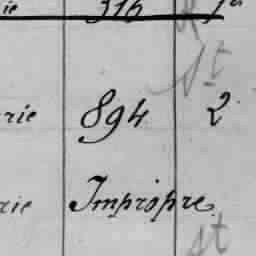 ie 316 1
St
rie 894 2
rie Impropre
St